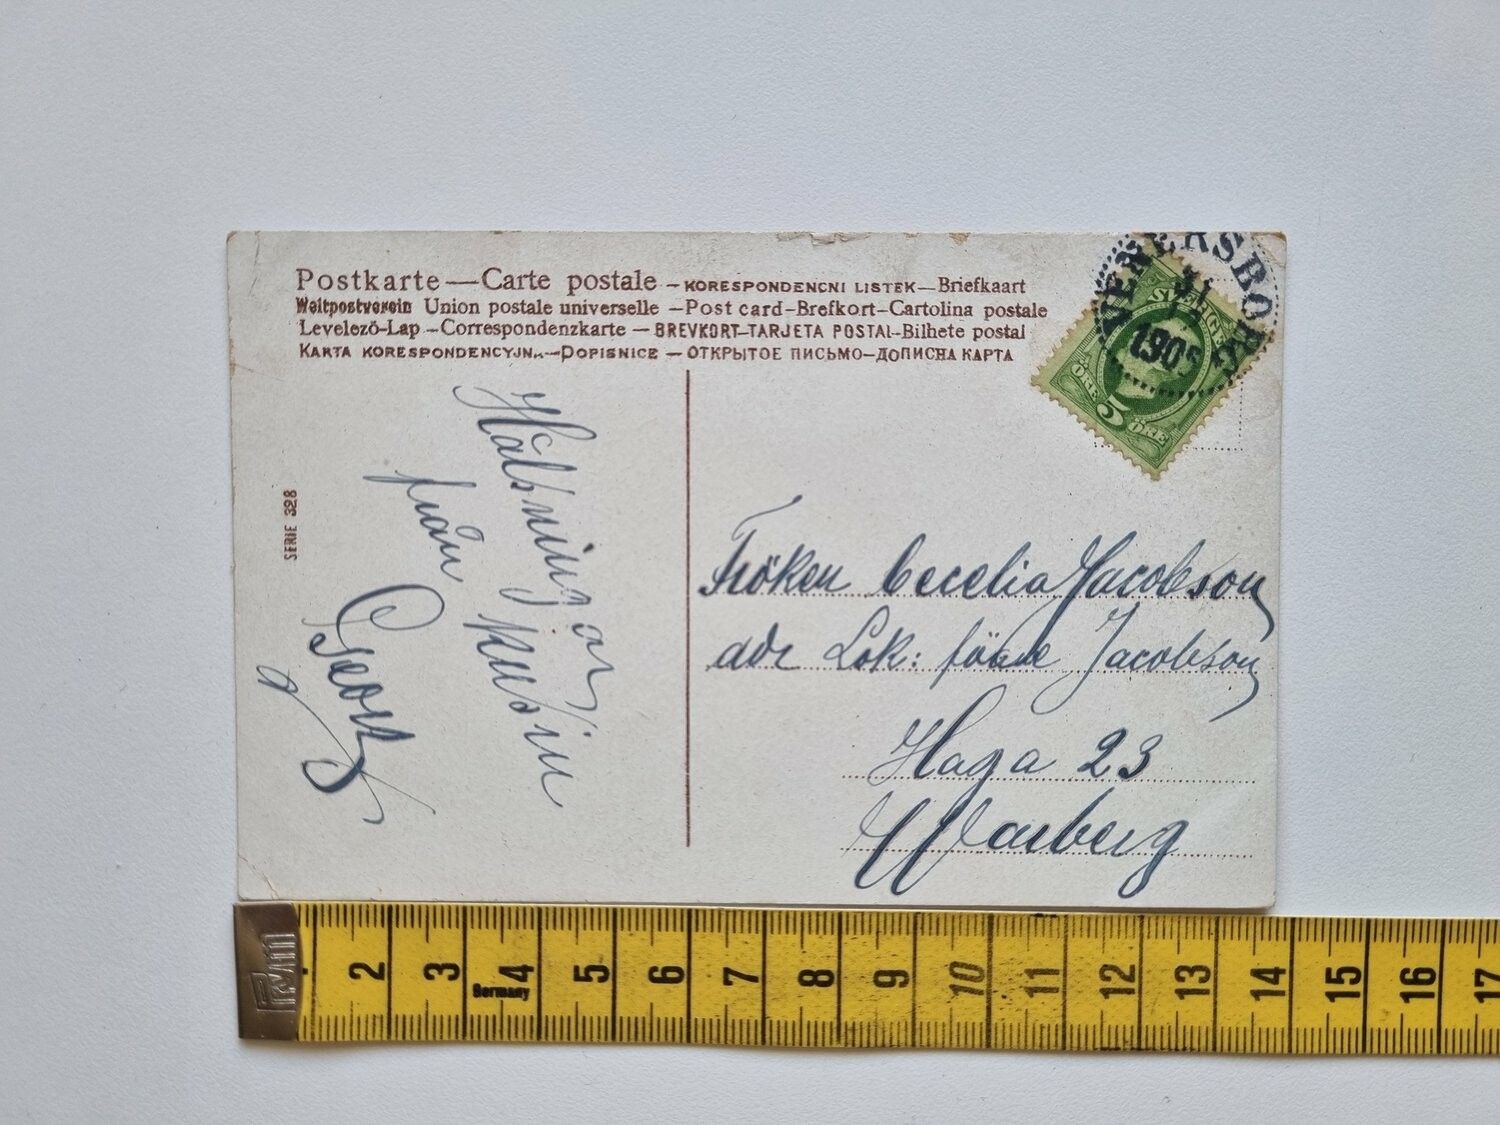 Postkarte — Carte postale – KORESPONDENCNI LISTEK — Briefkaart
Weltpostverein Union postale universelle – Post card – Brefkort – Cartolina postale
Levelezö-Lap – Correspondenzkarte – BREVKORT – TARJETA POSTAL – Bilhete postal
KARTA KORESPONDENCYJNA – DOPISNICE – ОТКРЫТОЕ ПИСЬМО – ДОПИСНА КАРТА
SERIE 328
Hälsningar
från Kusin
Georg
WENERSBORG
31
1905
SVERIGE
5
ÖRE
ÖRE
Fröken Cecelia Jacobson
adr Lok: förare Jacobson
Haga 23
Warberg
Prym
2 3 4 5 6 7 8 9 10 11 12 13 14 15 16 17
Germany